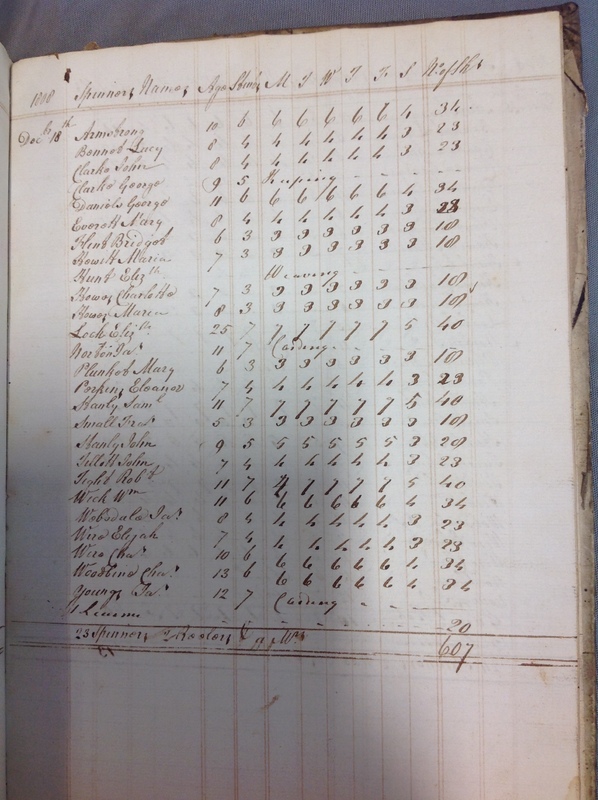 1808 Spinners Names Age Stints M T W T F S No of Sks
Decbr 18th Armstrong 10 6 6 6 6 6 6 4 34
Bennet Lucy 8 4 4 4 4 4 4 3 23
Clarke John 8 4 4 4 4 4 4 3 23
Clarke George 9 5 - - - -
Daniels George 11 6 6 6 6 6 6 4 34
Everett Mary 8 4 4 4 4 4 4 3 23
Kent Bridget 6 3 3 3 3 3 3 3 18
Howett Maria 7 3 3 3 3 3 3 3 18
Hunt Elizth Weaving - - - -
Howes Charlotte 7 3 3 3 3 3 3 3 18
Howes Maria 8 3 3 3 3 3 3 3 18
Lock Elizth 25 7 7 7 7 7 7 5 40
Norton Jas 11 7 Carding - - -
Plunket Mary 6 3 3 3 3 3 3 3 18
Perkins Eleanor 7 4 4 4 4 4 4 3 23
Hanly Saml 11 7 7 7 7 7 7 5 40
Small Fras 5 3 3 3 3 3 3 3 18
Hanly John 9 5 5 5 5 5 5 3 28
Tillett John 7 4 4 4 4 4 4 3 23
Tight Robt 11 7 7 7 7 7 7 5 40
Wick Wm 11 6 6 6 6 6 6 4 34
Websdale Jas 8 4 4 4 4 4 4 3 23
Wire Elijah 7 4 4 4 4 4 4 3 23
Wire Chas 10 6 6 6 6 6 6 4 34
Woodbine Chas 13 6 6 6 6 6 6 4 34
Youngs Jas 12 7 Carding - - -
1 - - - - 20
23 Spinners 2 & 607